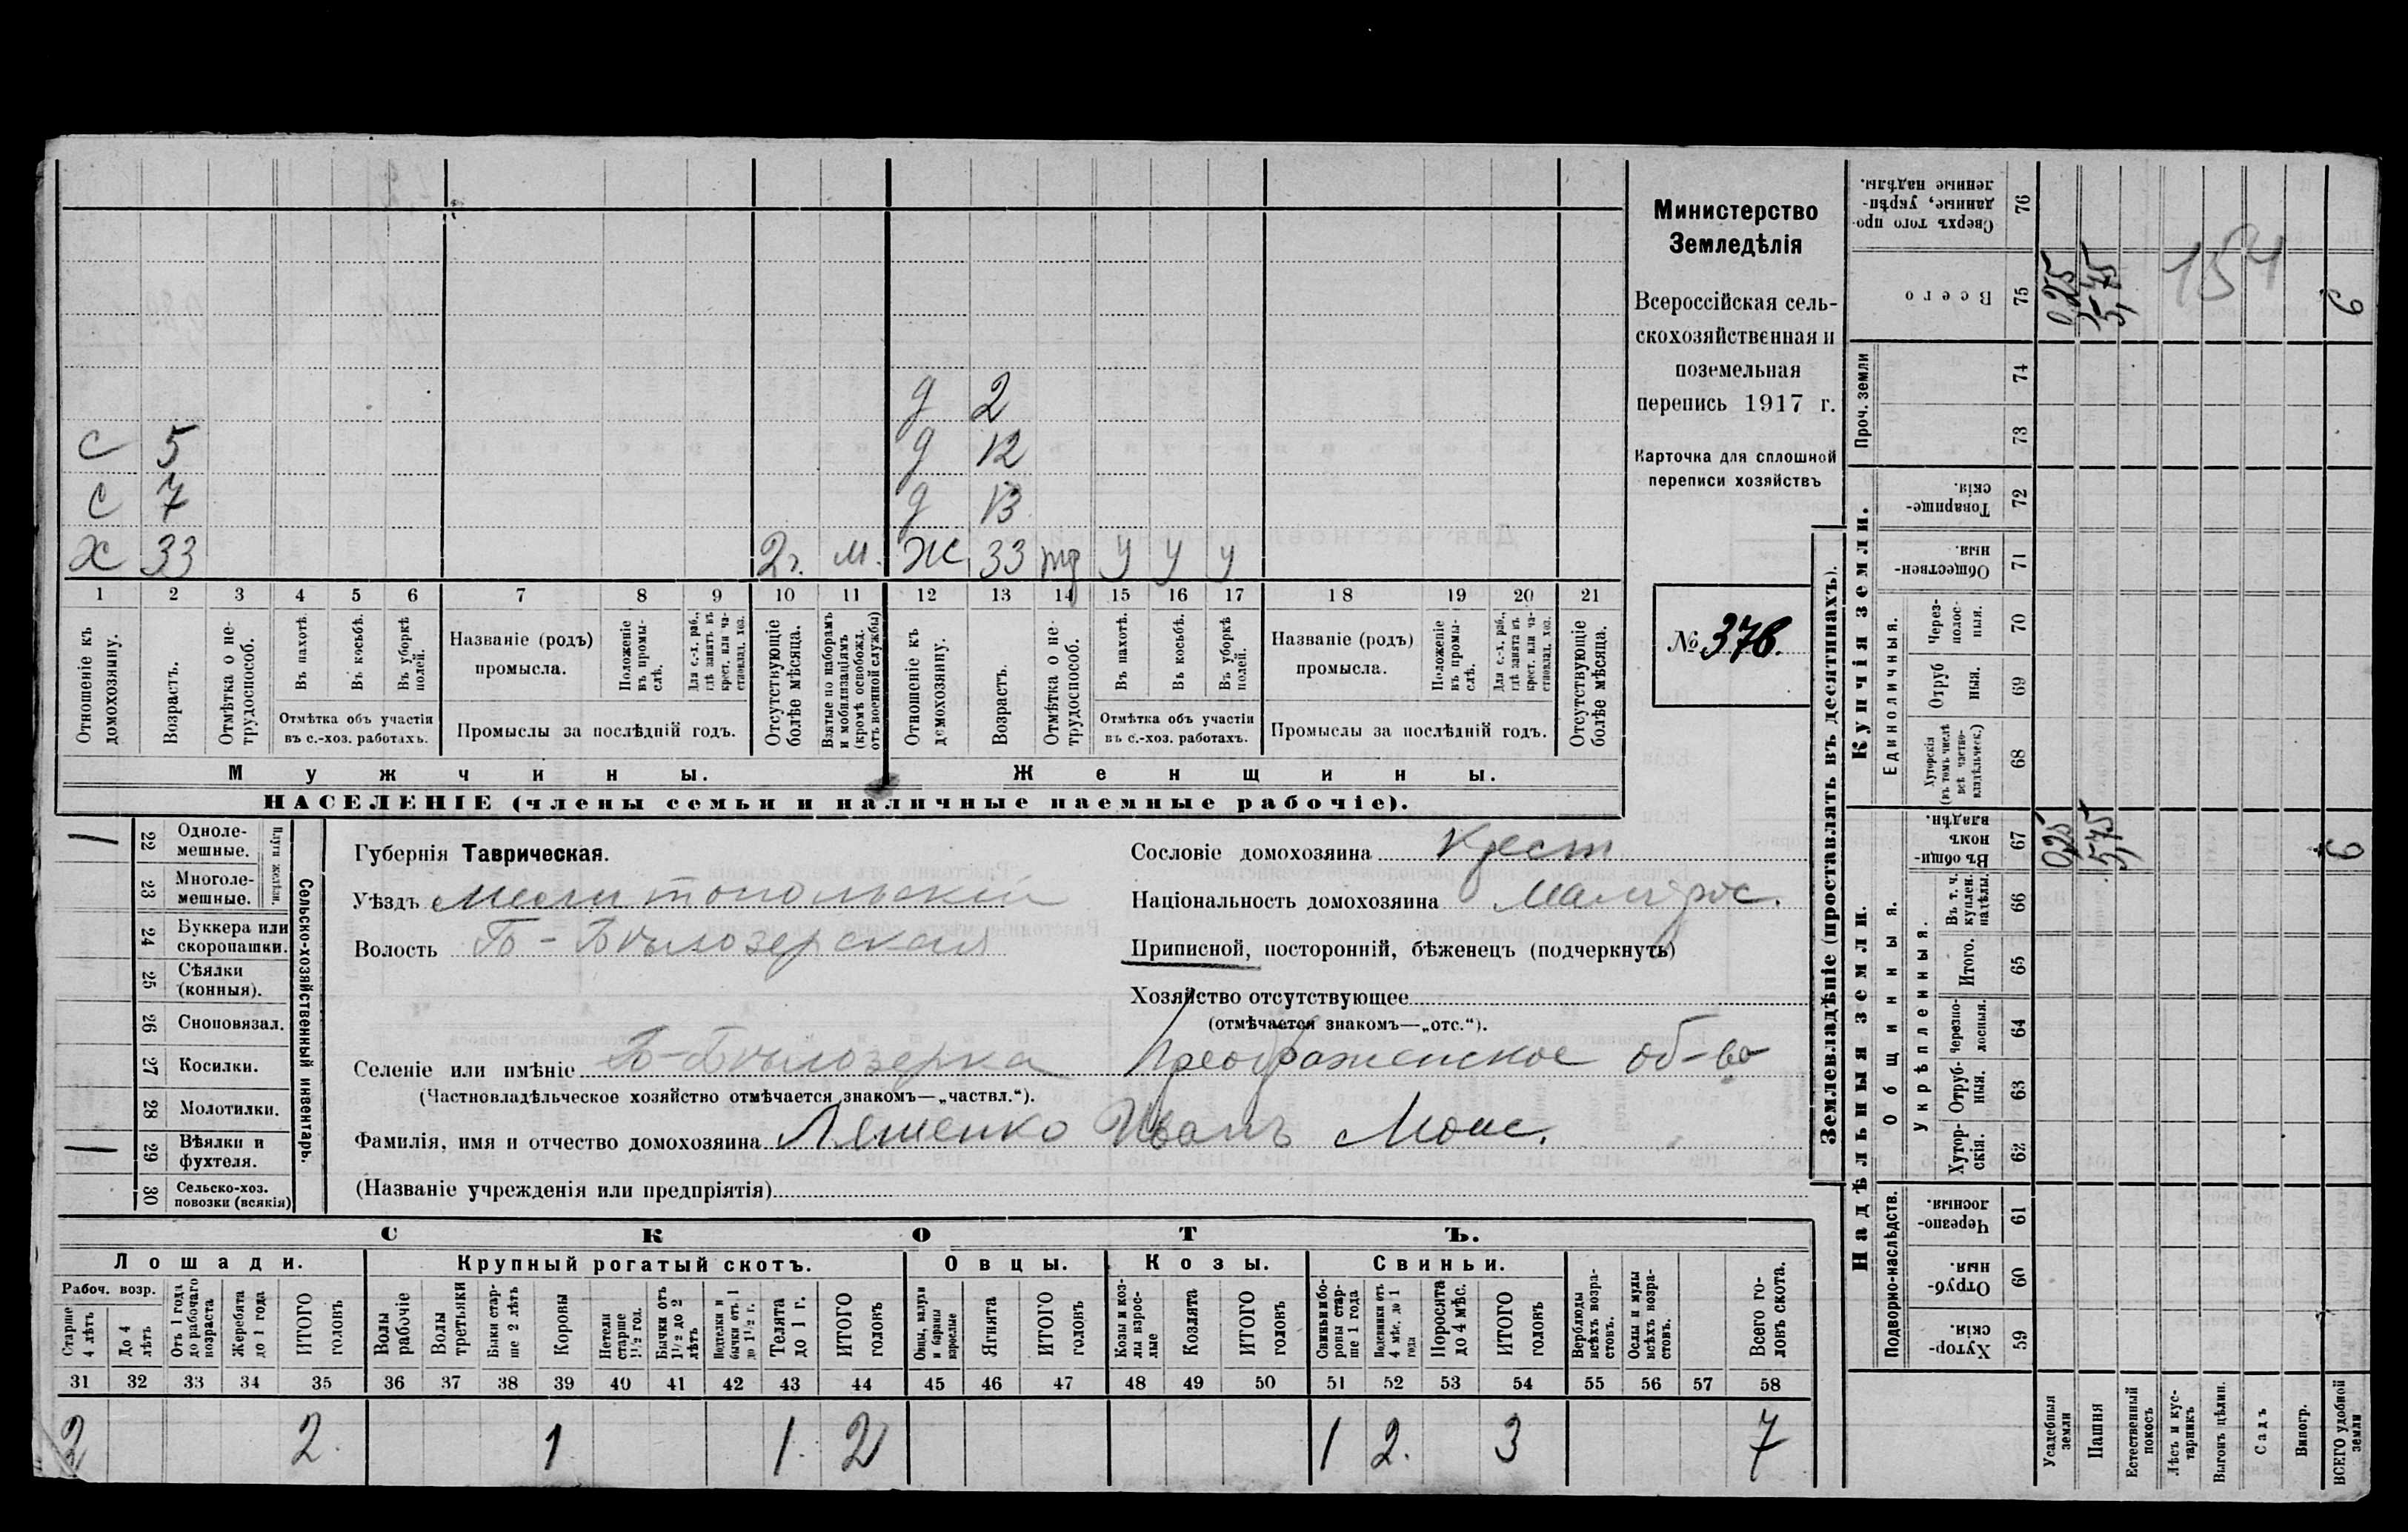 Министерство
Земледѣлія
Всероссійская сель-
скохозяйственная и
поземельная
перепись 1917 г.
Карточка для сплошной
переписи хозяйствъ
№ 376.
д 2
С 5 д 12
С 7 д 13
Х 33 2 г. м. Ж 33 тр у у у
1 2 3 4 5 6 7 8 9 10 11 12 13 14 15 16 17 18 19 20 21
Отношеніе къ домохозяину.
Возрастъ.
Отмѣтка о не-трудоспособ.
Въ пахотѣ.
Въ косьбѣ.
Въ уборкѣ полей.
Отмѣтка объ участіи
въ с.-хоз. работахъ.
Названіе (родъ)
промысла.
Положеніе въ промы-слѣ.
Для с.-х. раб., гдѣ занятъ въ крест. или ча-стновлад. хоз.
Промыслы за послѣдній годъ.
Отсутствующіе болѣе мѣсяца.
Взятые по наборамъ и мобилизаціямъ (кромѣ освобожд. отъ военной службы)
Отношеніе къ домохозяину.
Возрастъ.
Отмѣтка о не-трудоспособ.
Въ пахотѣ.
Въ косьбѣ.
Въ уборкѣ полей.
Отмѣтка объ участіи
въ с.-хоз. работахъ.
Названіе (родъ)
промысла.
Положеніе въ промы-слѣ.
Для с.-х. раб., гдѣ занята въ крест. или ча-стновлад. хоз.
Промыслы за послѣдній годъ.
Отсутствующіе болѣе мѣсяца.
Мужчины.
Женщины.
НАСЕЛЕНІЕ (члены семьи и наличные наемные рабочіе).
Сельско-хозяйственный инвентарь.
Плуги желѣзн.
1 22 Одноле-мешные.
23 Многоле-мешные.
24 Буккера или скоропашки.
25 Сѣялки (конныя).
26 Сноповязал.
27 Косилки.
28 Молотилки.
1 29 Вѣялки и фухтеля.
30 Сельско-хоз. повозки (всякія)
Губернія Таврическая.
Уѣздъ Мелитопольскій
Волость Б-Бѣлозерская
Сословіе домохозяина крест
Національность домохозяина Малорос.
Приписной, посторонній, бѣженецъ (подчеркнуть)
Хозяйство отсутствующее
(отмѣчается знакомъ—„отс.“).
Селеніе или имѣніе Б-Бѣлозерка Преображенское об-во
(Частновладѣльческое хозяйство отмѣчается знакомъ—„частвл.“).
Фамилія, имя и отчество домохозяина Ляшенко Иванъ Моис.
(Названіе учрежденія или предпріятія)
СКОТЪ.
Лошади. Крупный рогатый скотъ. Овцы. Козы. Свиньи.
Рабоч. возр.
Старше 4 лѣтъ
До 4 лѣтъ
Отъ 1 года до рабочаго возраста
Жеребята до 1 года
ИТОГО головъ
Волы рабочіе
Волы третьяки
Быки стар-ше 2 лѣтъ
Коровы
Нетели старше 1½ год.
Бычки отъ 1½ до 2 лѣтъ
Подтелки и бычки отъ 1 до 1½ г.
Телята до 1 г.
ИТОГО головъ
Овцы, валухи и бараны взрослые
Ягнята
ИТОГО головъ
Козы и коз-лы взрос-лые
Козлята
ИТОГО головъ
Свиньи и бо-ровы стар-ше 1 года
Подсвинки отъ 4 мѣс. до 1 года
Поросята до 4 мѣс.
ИТОГО головъ
Верблюды всѣхъ возра-стовъ.
Ослы и мулы всѣхъ возра-стовъ.
Всего го-ловъ скота.
31 32 33 34 35 36 37 38 39 40 41 42 43 44 45 46 47 48 49 50 51 52 53 54 55 56 57 58
2 2. 1 1. 2 1 2. 3 7
Землевладѣніе (проставлять въ десятинахъ).
Надѣльныя земли.
Купчія земли.
Проч. земли
Подворно-наслѣдств.
Общинныя.
Укрѣпленныя.
Единоличныя.
Сверхъ того про-данные, укрѣп-ленные надѣлы. 76
Всего 75 0,25 5,75 6
154
74
73
Товарище-скія. 72
Обществен-ныя. 71
Через-полос-ныя. 70
Отруб-ныя. 69
Хуторскія (въ томъ числѣ всѣ частно-владѣльческ.) 68
Въ общи-номъ владѣн. 67 0,25 5,75 6
Въ т. ч. куплен. надѣлы. 66
Итого. 65
Черезпо-лосныя. 64
Отруб-ныя. 63
Хутор-скія. 62
Черезпо-лосныя 61
Отруб-ныя. 60
Хутор-скія. 59
Усадебныя земли
Пашня
Естественный покосъ
Лѣсъ и кус-тарникъ
Выгонъ цѣлин.
Садъ
Виногр.
ВСЕГО удобной земли